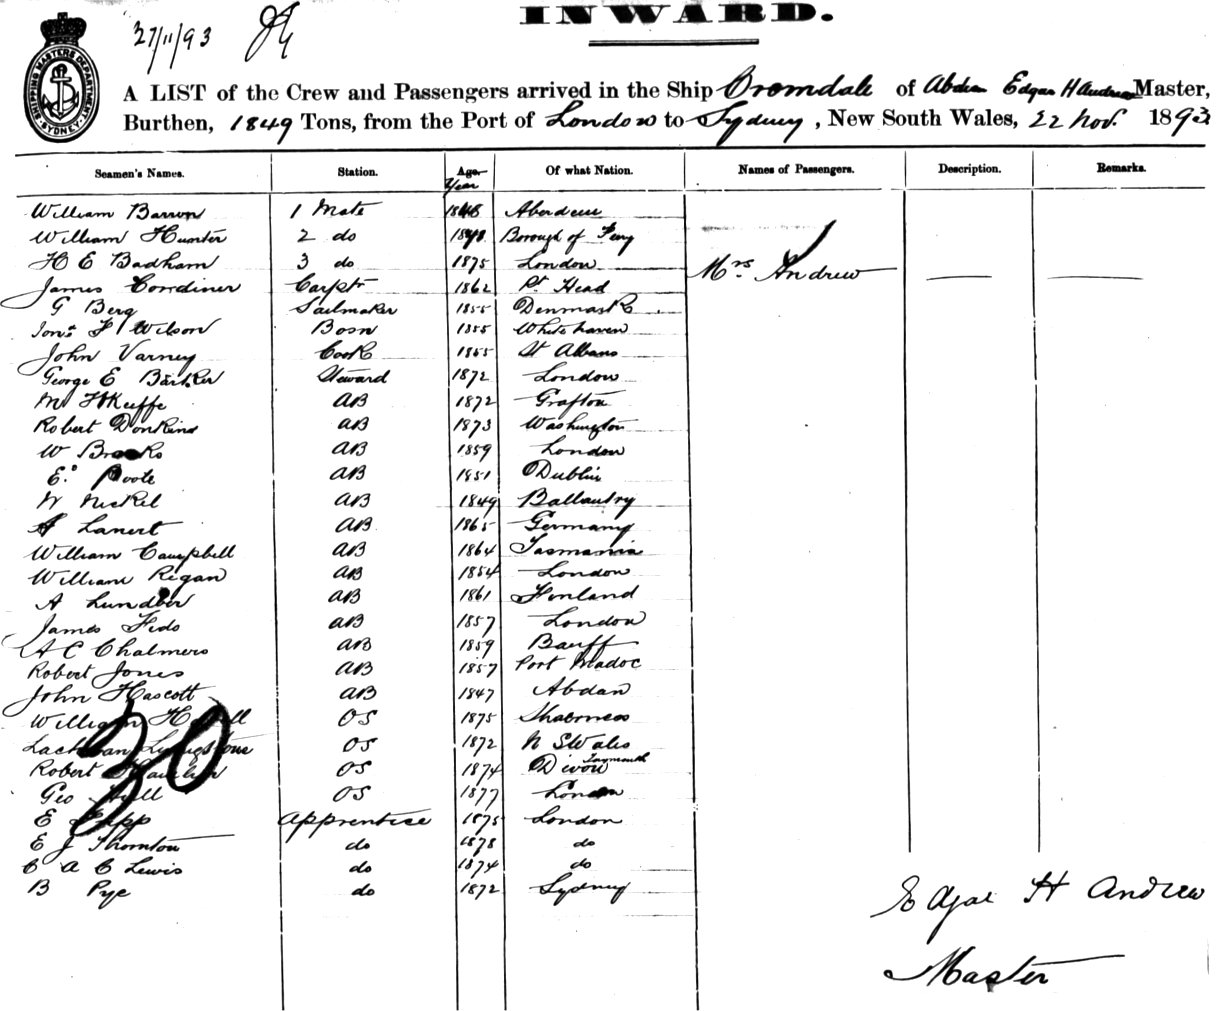 27/11/93
INWARD.
SHIPPING MASTERS DEPARTMENT SYDNEY
A LIST of the Crew and Passengers arrived in the Ship Bromdale of Abdn Edgar H Andrew Master,
Burthen, 1849 Tons, from the Port of London to Sydney, New South Wales, 22 Nov. 1893
Seamen's Names. Station. Age Year Of what Nation. Names of Passengers. Description. Remarks.
William Barron 1 Mate Aberdeen
William Hunter 2 do Borough of Ferry
H E Badham 3 do 1875 London Mrs. Andrew
James Cordiner Carptr 1862 Pt Head
G Berg Sailmaker 1855 Denmark
Jons F Wilson Bosn 1855 Whitehaven
John Varney Cook 1855 St Albans
George E Barker Steward 1872 London
M AB 1872 Grafton
Robert Donkins AB 1873 Washington
W Brooks AB 1859 London
E. Poole AB 1851 Dublin
W Nickel AB 1849 Ballantry
A Lanert AB 1865 Germany
William Campbell AB 1864 Tasmania
William Regan AB 1854 London
A Lundber AB 1861 Finland
James Fido AB 1857 London
A C Chalmers AB 1859 Banff
Robert Jones AB 1857 Port Madoc
John Hascott AB 1847 Abdan
William OS 1875 Sheerness
OS 1872 N S Wales
Robert OS 1874 Devon
Geo OS 1877 London
30
E Apprentice 1875 London
E J Thornton do 1878 do
C A C Lewis do 1874 do
B Pye do 1872 Sydney
Edgar H Andrew
Master